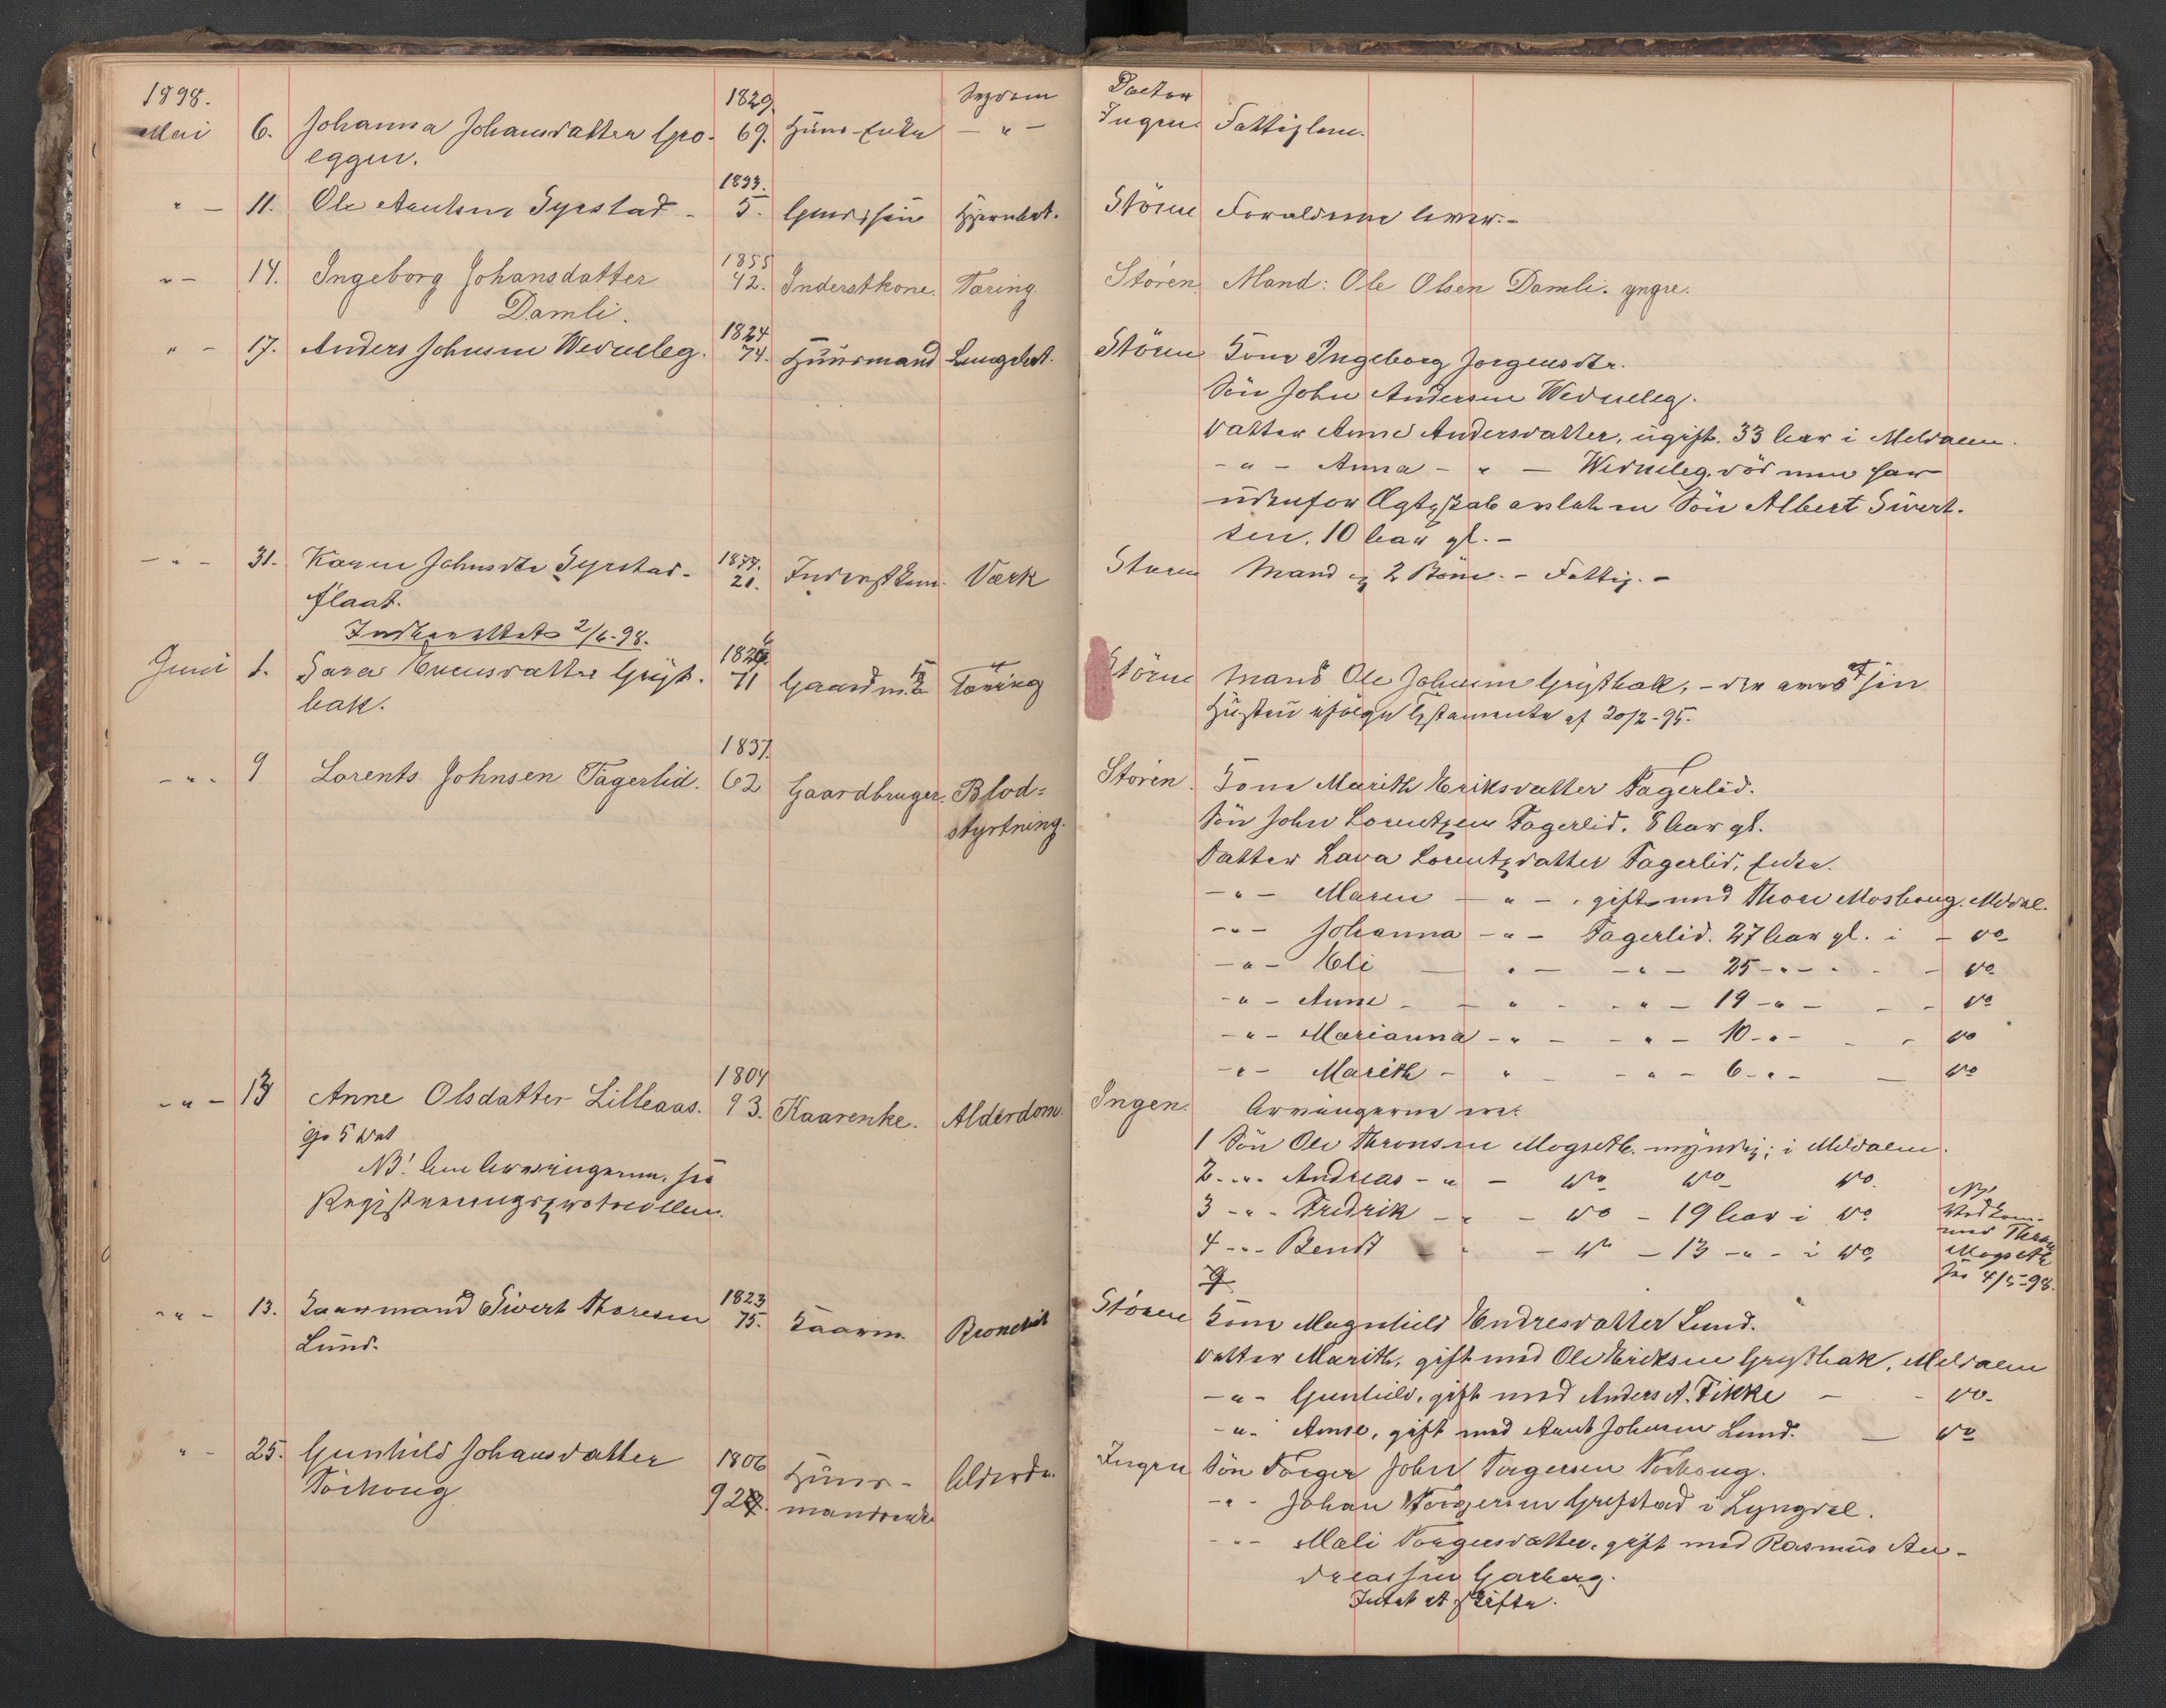 1898.
1829. Sygdom Doctor
Mai 6. Johanna Johansdatter Gro- 69. Huus-Enke - " - Ingen Fattiglem.
eggen.
1893.
" - 11. Ole Arntsen Syrstad - 5. Gaardssøn Hjernebet. Støren Forældrene lever.-
1855
" - 14. Ingeborg Johansdatter 42. Inderstkone. Tæring Støren Mand: Ole Olsen Damli. yngre.
Damli.
1824
" - 17. Anders Johnsen 74. Huusmand Lungebet. Støren Kone Ingeborg Jørgensdtr.
Søn John Andersen
Datter Anne Andersdatter, ugift. 33 Aar i Meldalen.
- " - Anna - " - død men har
udenfor Ægteskab avlet en Søn Albert Sivert-
sen. 10 Aar gl. -
- " - 31. Karen Johnsdtr Syrstad- 1877. 21. Inderstkone. Værk Støren Mand og 2 Børn. - Fattig. -
flaat.
Indberettet 2/6-98.
Juni 1. Sara Evensdatter Gryt- 71 Gaardmk Tæring Støren Mand Ole Johnsen Grytbak, - der arver sin
bak. Hustru ifølge Testamente af 20/2-95.
1837.
- " - 9 Lorents Johnsen Fagerlid. 62 Gaardbruger. Blod= Støren. Kone Marith Eriksdatter Fagerlid.
styrtning. Søn John Lorentzen Fagerlid. 8 Aar gl.
Datter Lava Lorentzdatter Fagerlid, Enke.
- " - Maren - " - . gift med Thore Moshaug. Meldal.
- " - Johanna - " - Fagerlid. 27 Aar gl. i - do
- " - Eli - " - - " - 25 - " - - do
- " - Anne - " - - " - 19 - " - - do
- " - Marianna - " - - " - 10 - " - - do
- " - Marith - " - - " - 6 - " - - do
1804
- " - 13 Anne Olsdatter Lilleaas. 93. Kaarenke. Alderdom. Ingen. Arvingerne ere:
1 Søn Ole Thronsen Mogseth. myndig; i Meldalen.
NB! Om Arvingerne, see 2 - " - Andreas - " - do do do.
Registreringsprotocollen. 3 - " - Fredrik - " - do - 19 Aar i do
4 - " - Bendt - " - do - 13 - " - i do
med Thron
Mogseth
4/5-98.
1823
- " - 13. Kaarmand Sivert Thoresen 75. Kaarm. Bronchit Støren Kone Magnhild Endresdatter Lund.
Lund. Datter Marith, gift med Ole Eriksen Grytbak, Meldalen
- " - Gunhild, gift med Anders A. Fikke - - do-
- " - Anne, gift med Arnt Johnsen Lund. - do
" - 25. Gunhild Johansdatter 1806 Huus- Alderd. Ingen Søn John Torgersen
924. mandsenke - " - Johan Torgersen Grefstad i Lyngdal.
- " - Mali Torgersdatter, gift med Rasmus An-
dreassen Garberg.
Intet at skifte.